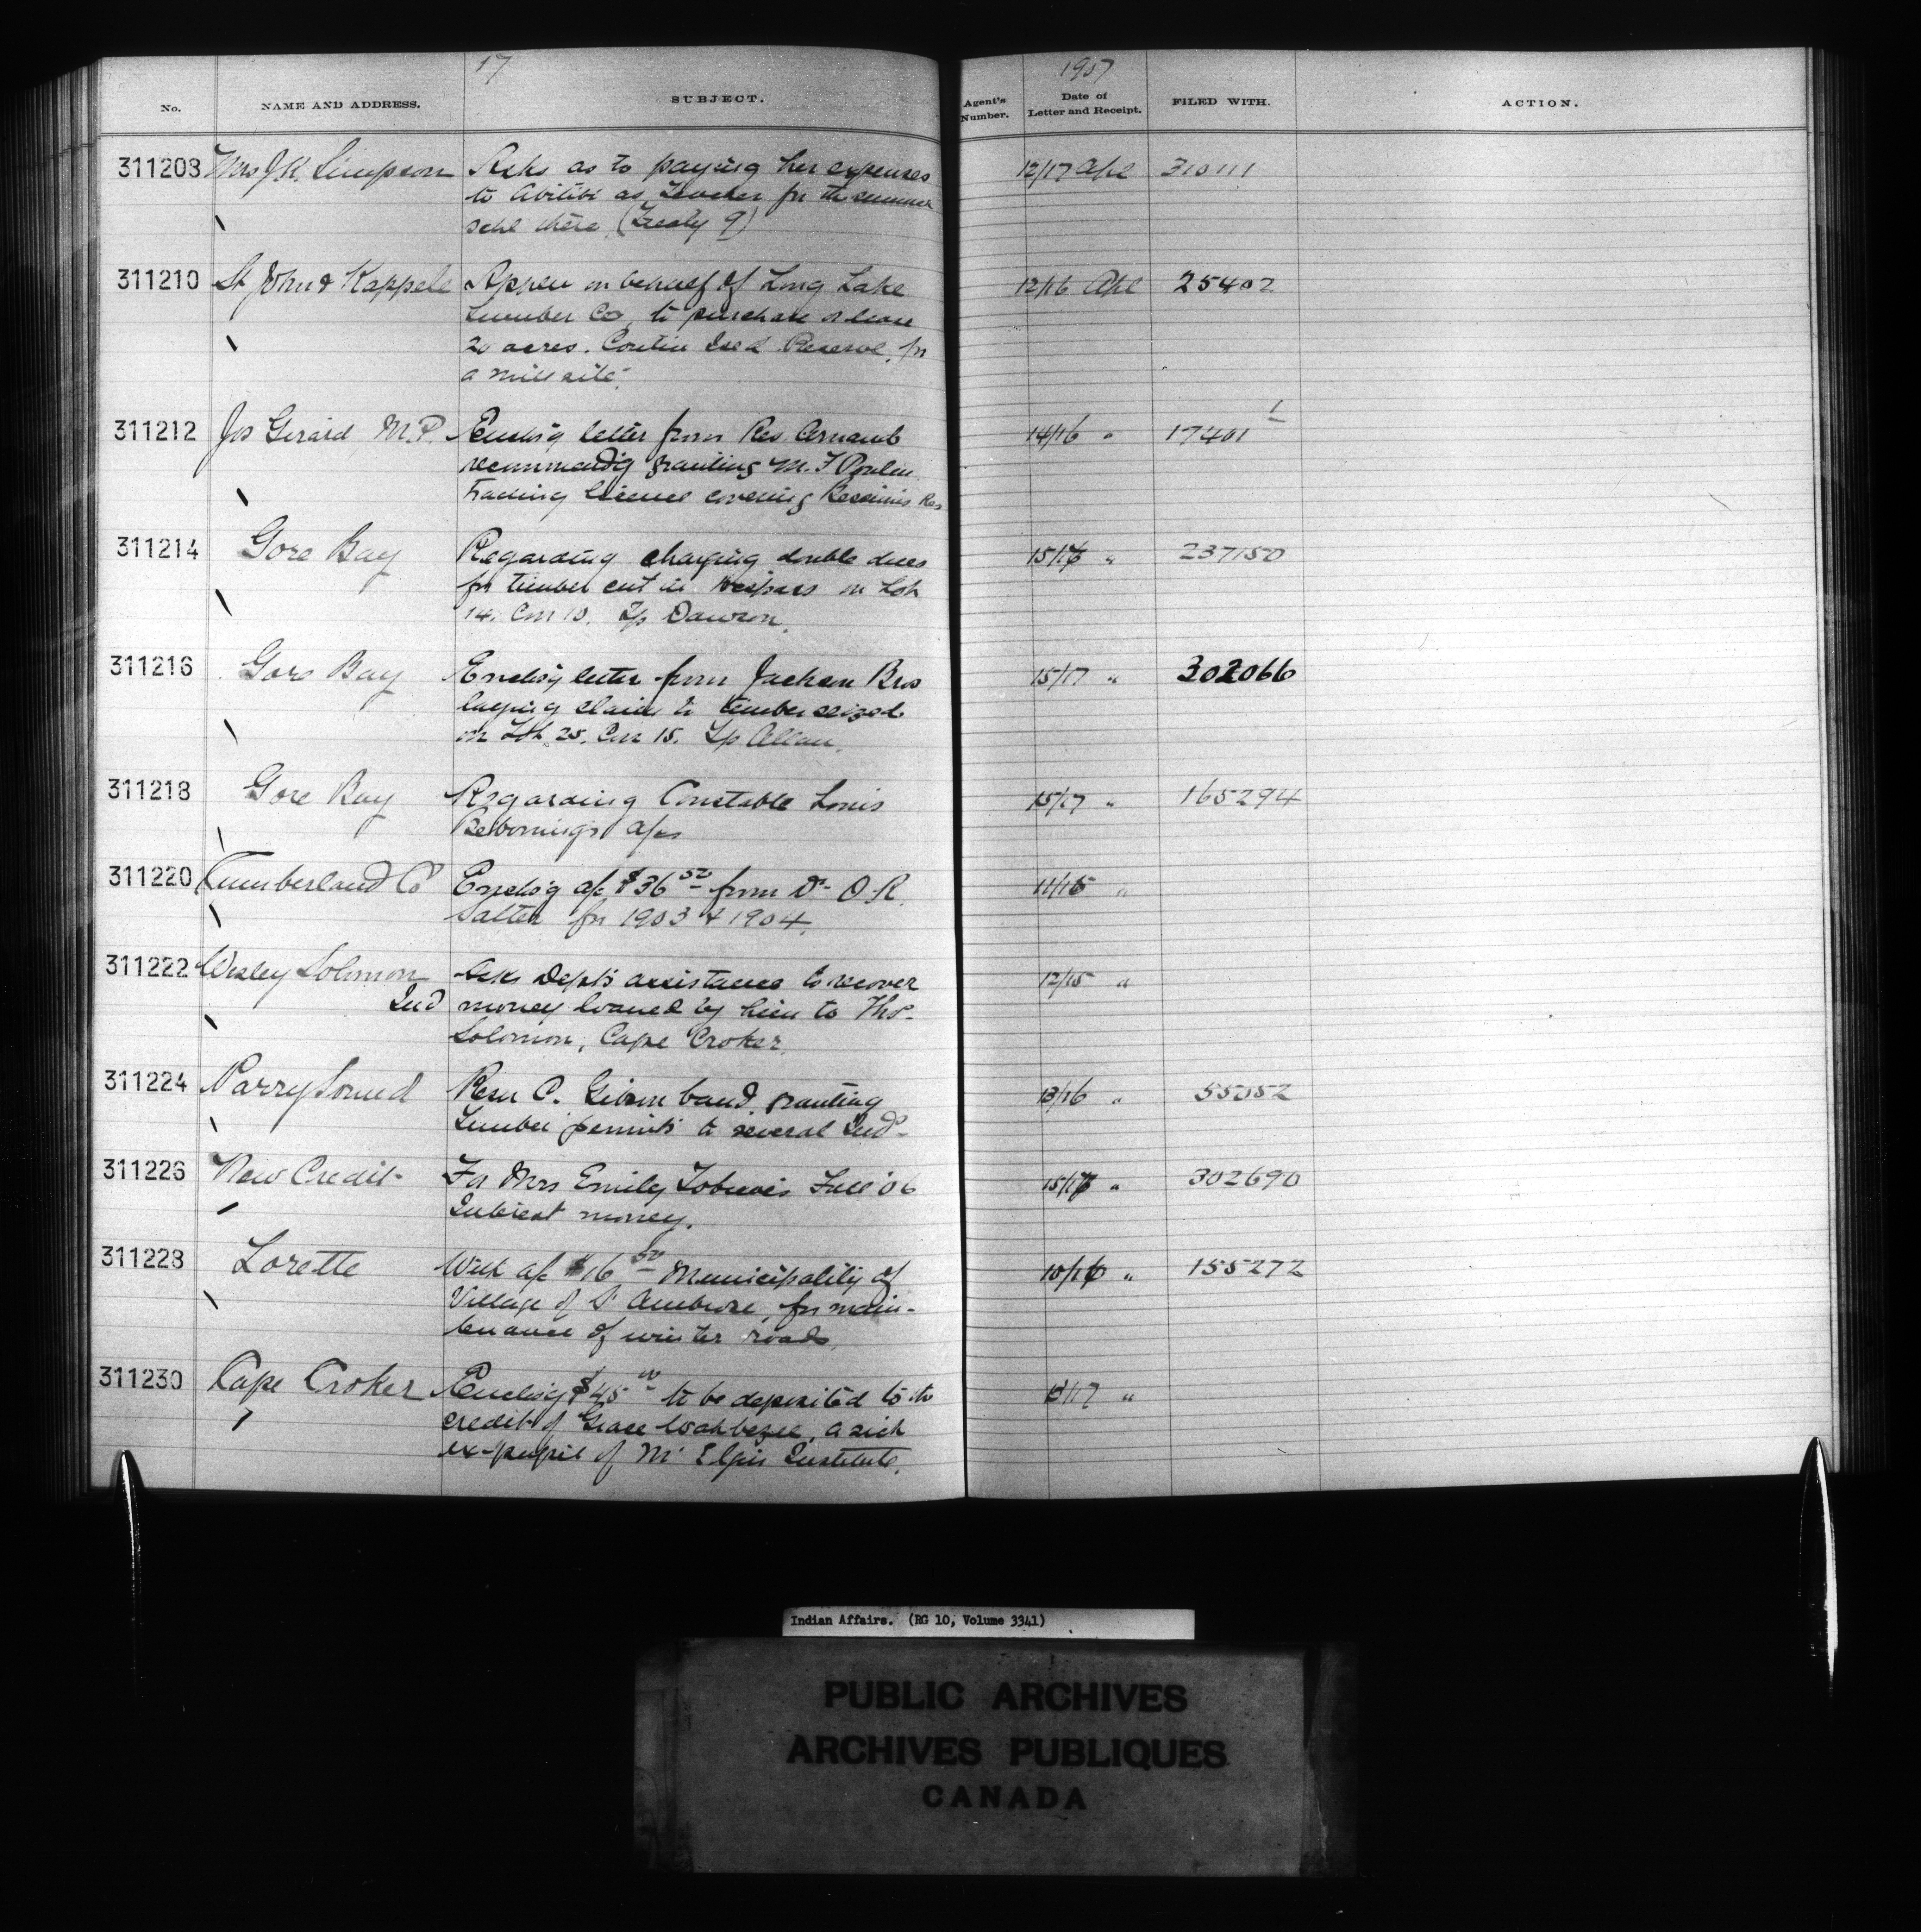 17
1907
No. NAME AND ADDRESS. SUBJECT. Agent's Number. Date of Letter and Receipt. FILED WITH. ACTION.
311208 Mrs J.K. Simpson Asks as to paying her expenses 12/17 Apl 310111
to Abitibi as Teacher for the summer
schl there (Treaty 9)
311210 St John & Kappele Appln on behalf of Long Lake 12/16 Apl 25402
Lumber Co, to purchase or lease
20 acres. Ind Reserve, for
a mill site.
311212 Jos Girard M.P. Enclosg letter from Rev. 14/16 " 17401 1
recommendg granting M. F Poulin
Trading license covering Res
311214 Gore Bay Regarding charging double dues 15/16 " 237150
for timber cut in trespass on Lot
14. Con 10. Tp Dawson.
311216 Gore Bay Enclosg letter from Jackson Bros 15/17 " 302066
laying claim to timber seized
on Lot 25. Con 15. Tp Allan.
311218 Gore Bay Regarding Constable Louis 15/17 " 165294
a/cs
311220 Cumberland Co Enclosg a/c $36 50 from Dr O.R. 11/15 "
Salter for 1903 & 1904.
311222 Wesley Solomon Asks Dept's assistance to recover 12/15 "
Ind money loaned by him to Thos
Solomon, Cape Croker.
311224 Parry Sound Resn P. Gibson band, granting 13/16 " 55052
Timber permits to several Inds
311226 New Credit For Mrs Emily Tobico's Fall '06 15/17 " 302690
Interest money.
311228 Lorette With a/c $16 50 Municipality of 10/16 " 155272
Village of St Ambroise, for main-
tenance of winter roads.
311230 Cape Croker Enclosg $45 00 to be deposited to the 13/17 "
credit of Grace Wahbezee, a sick
ex-pupil of Mt Elgin Institute.
Indian Affairs. (RG 10, Volume 3341)
PUBLIC ARCHIVES
ARCHIVES PUBLIQUES
CANADA